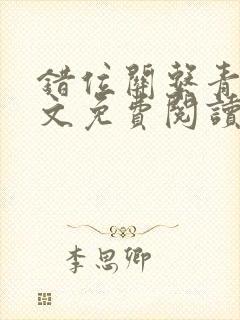 錯位關繫青
文免費閱讀
李思卿